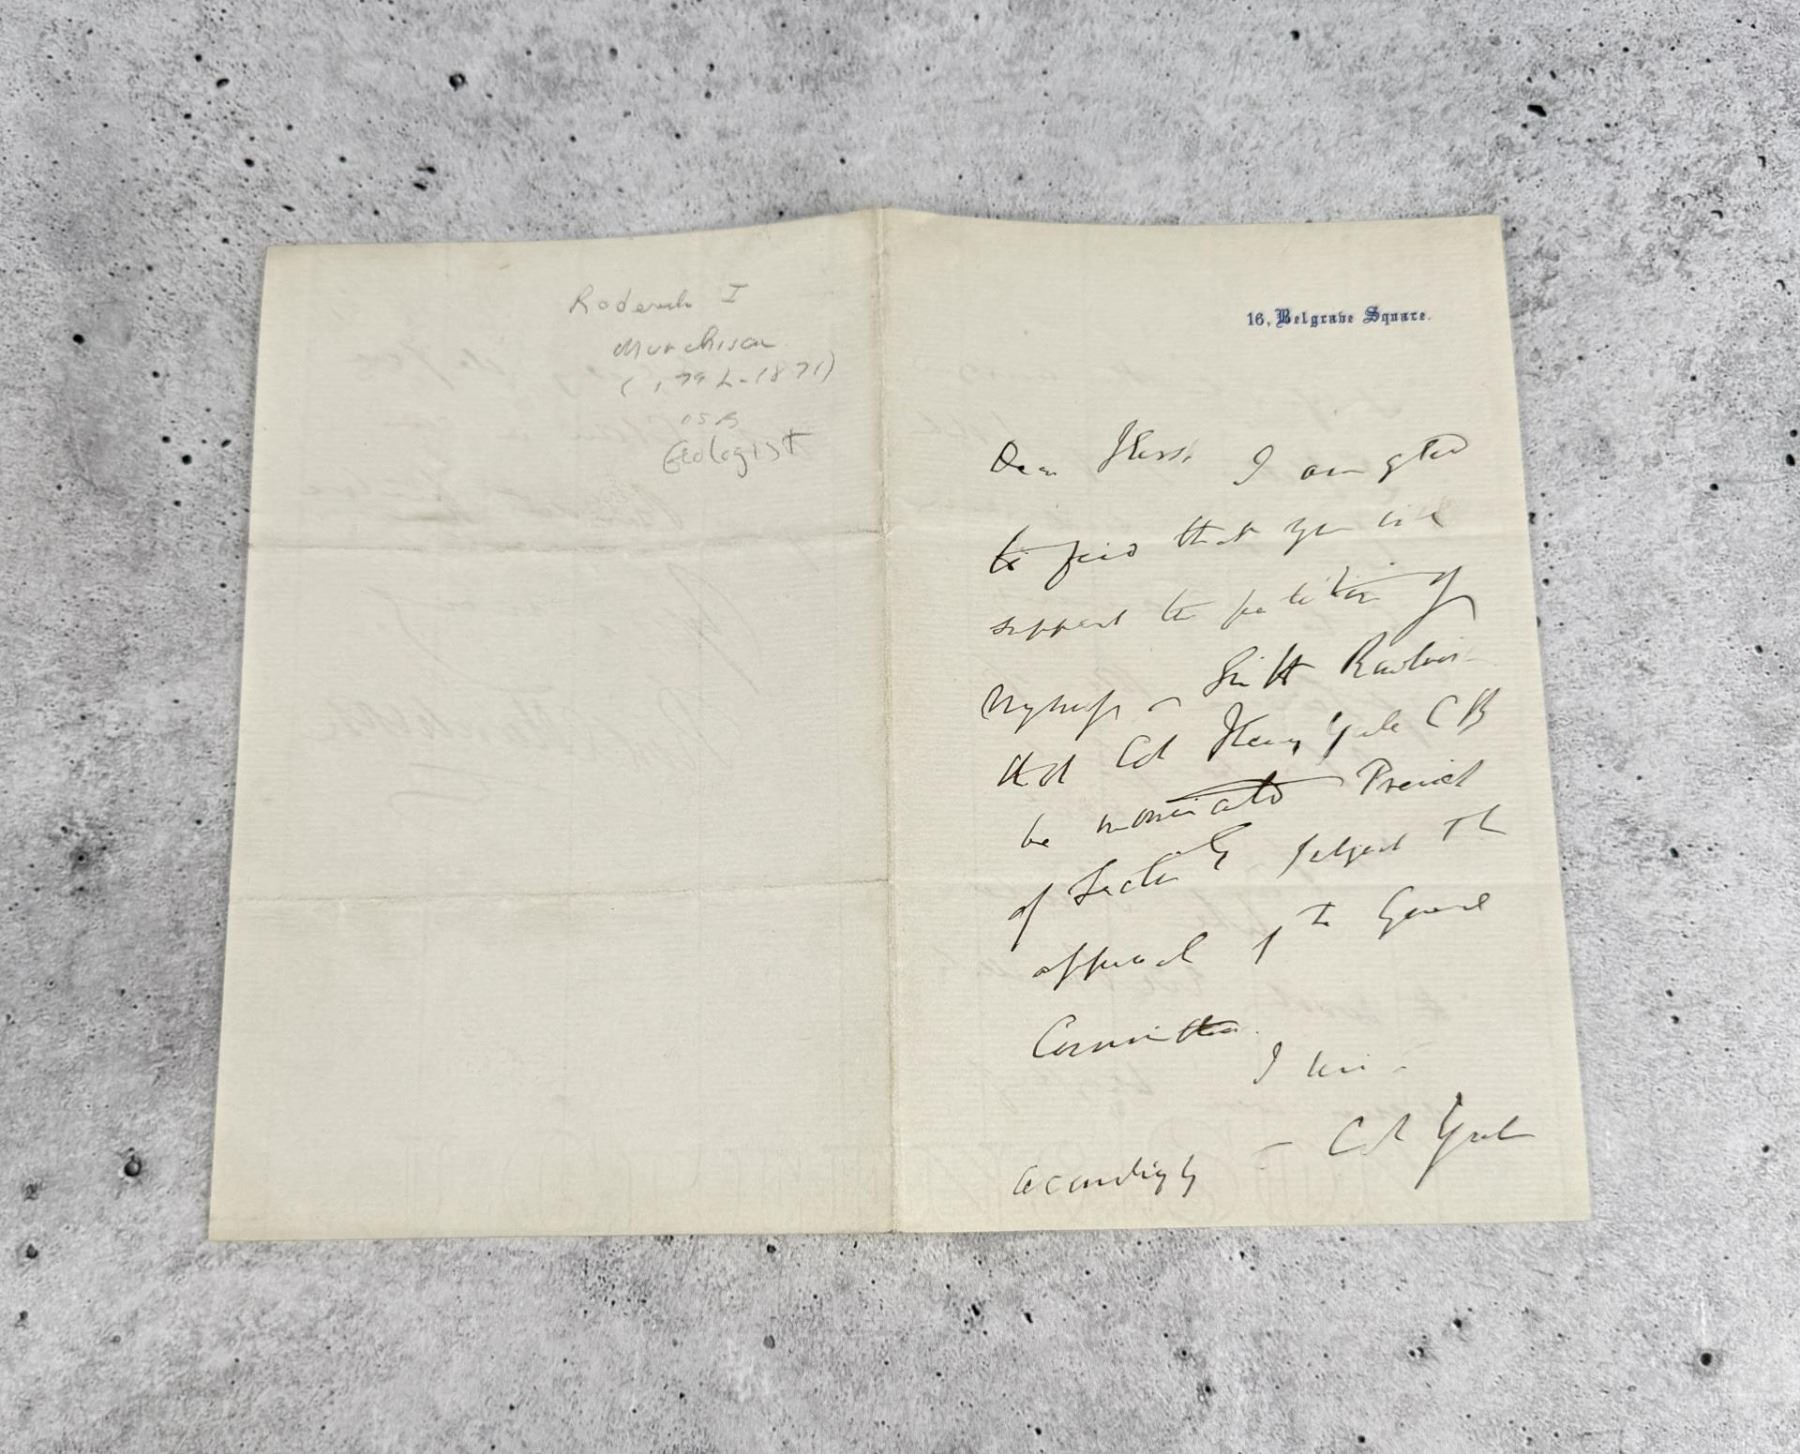 Roderick I
Murchison
(1792-1871)
Geologist
16, Belgrave Square.
Dear I am glad
to find that you will
support the petition of
myself & Sir H Rawlin-
that Col Henry Yule CB
be nominated Presidt
of Section E subject to the
approval of the General
Committee.
I
Col Yule
accordingly